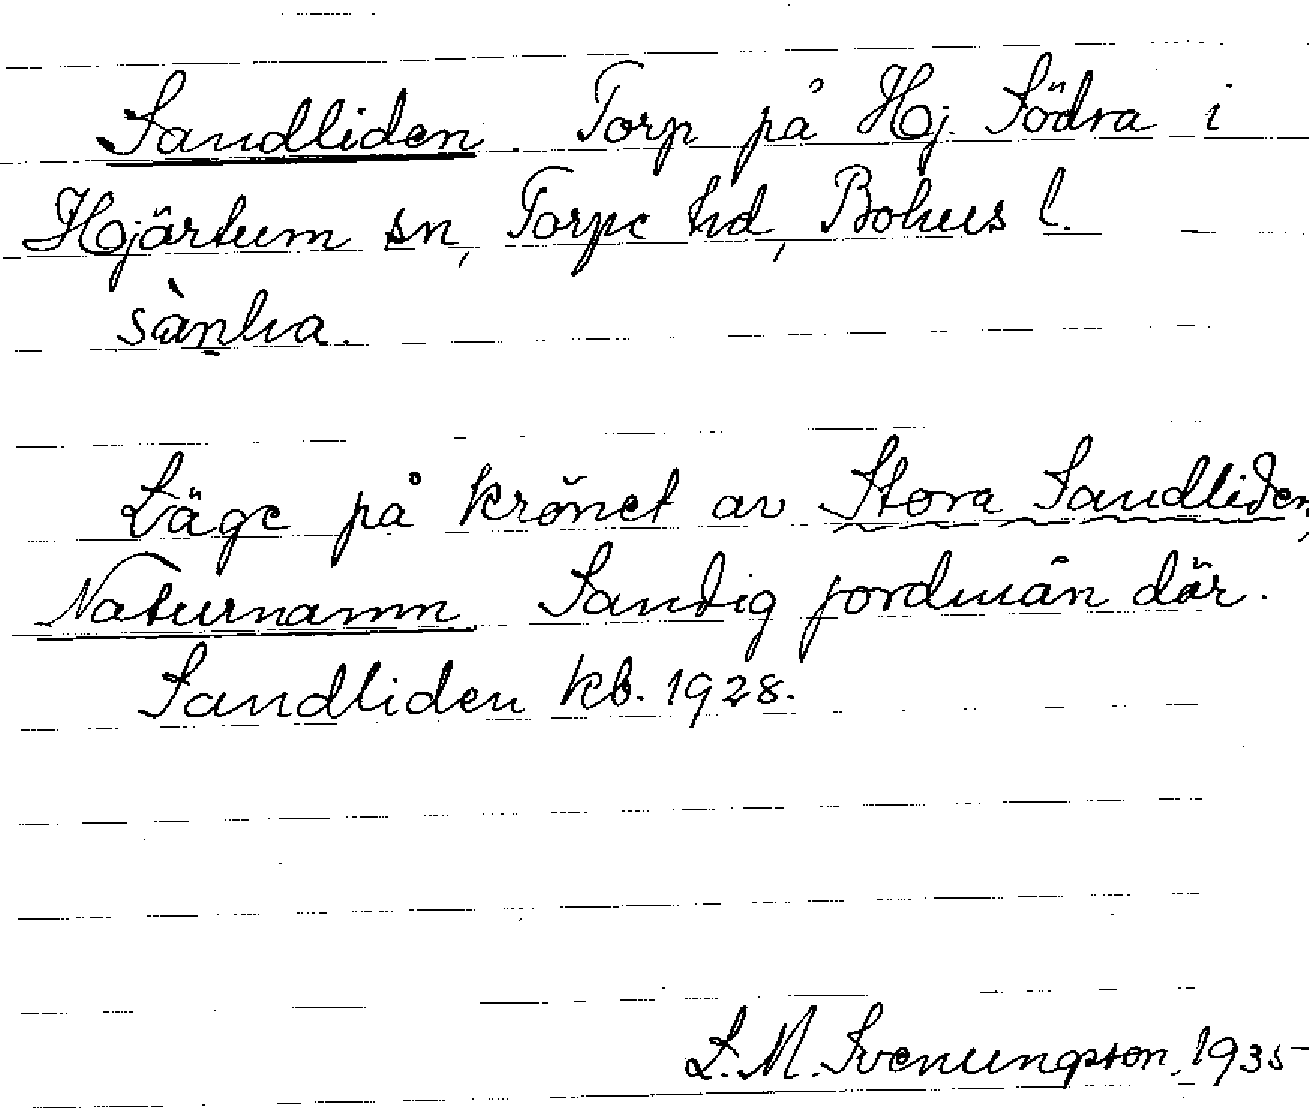 Sandliden. Torp på Hj. Södra i
Hjärtum sn, Torpe hd, Bohus l.
sànlia.
Läge på krönet av Stora Sandliden,
Naturnamn. Sandig jordmån där.
Sandliden kb. 1928.
S. M. Svenungsson, 1935